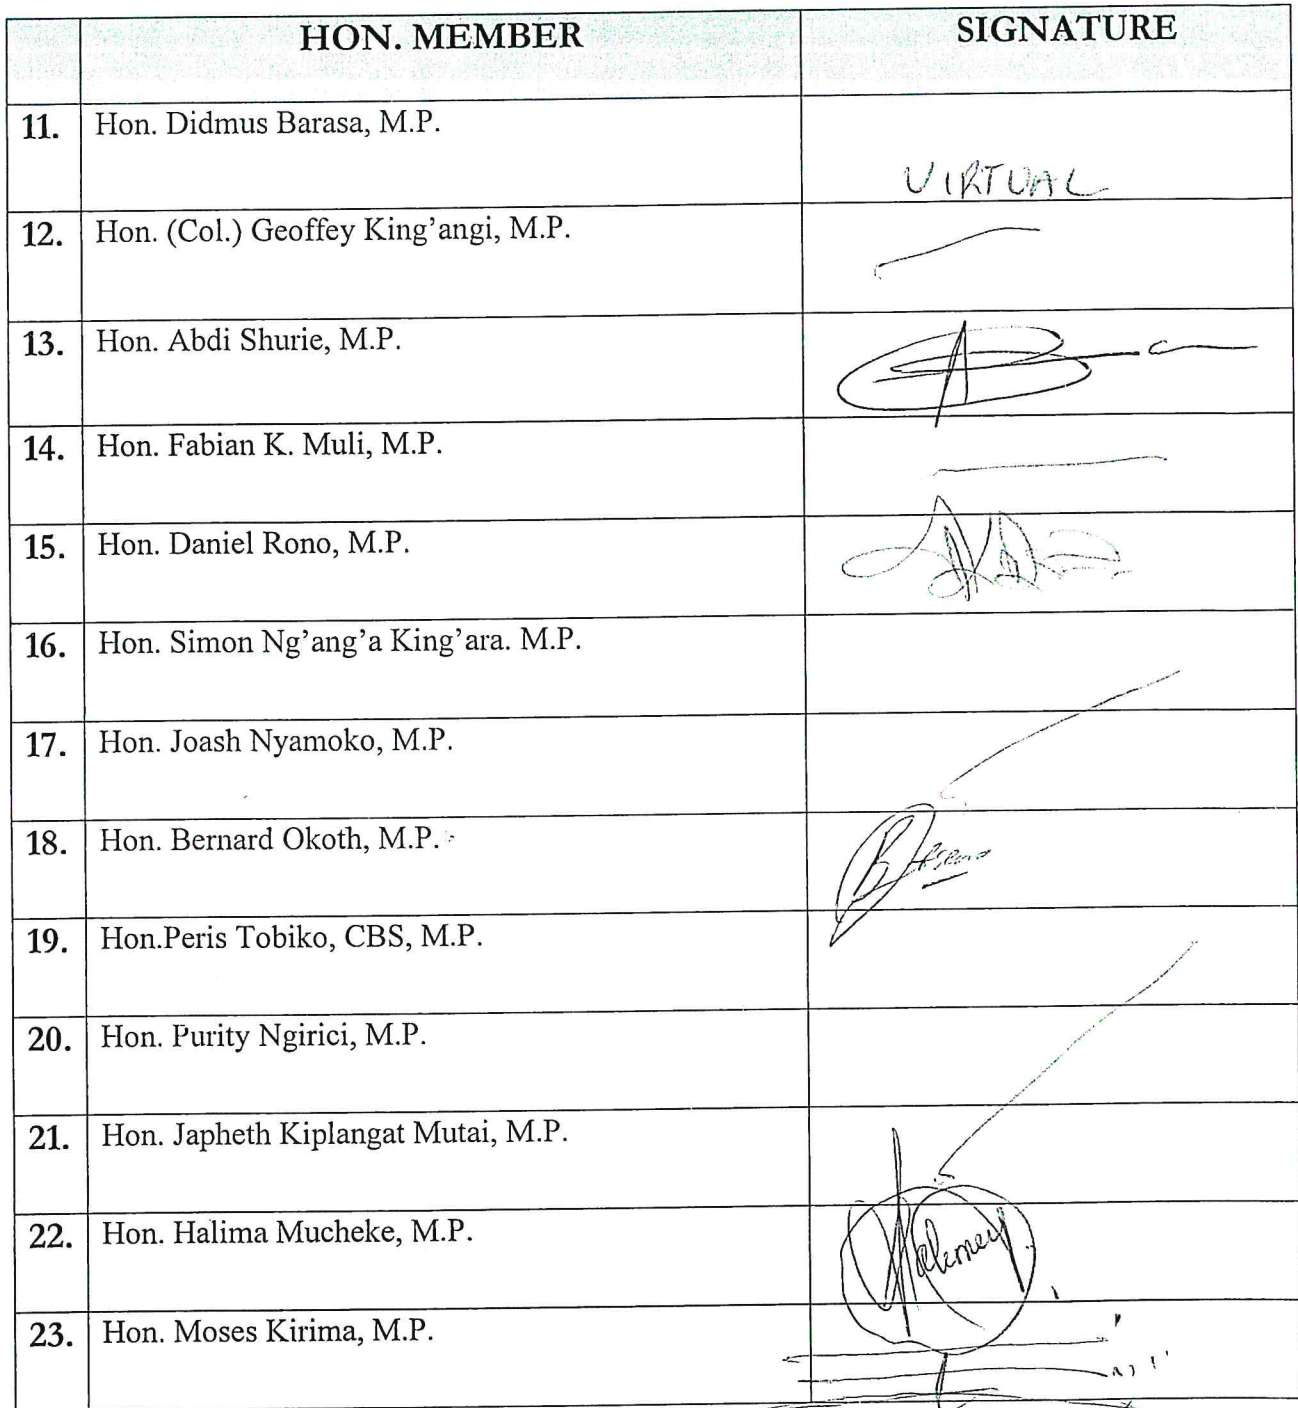 HON. MEMBER SIGNATURE
11. Hon. Didmus Barasa, M.P. VIRTUAL
12. Hon. (Col.) Geoffey King'angi, M.P.
13. Hon. Abdi Shurie, M.P.
14. Hon. Fabian K. Muli, M.P.
15. Hon. Daniel Rono, M.P.
16. Hon. Simon Ng'ang'a King'ara. M.P.
17. Hon. Joash Nyamoko, M.P.
18. Hon. Bernard Okoth, M.P.
19. Hon.Peris Tobiko, CBS, M.P.
20. Hon. Purity Ngirici, M.P.
21. Hon. Japheth Kiplangat Mutai, M.P.
22. Hon. Halima Mucheke, M.P.
23. Hon. Moses Kirima, M.P.